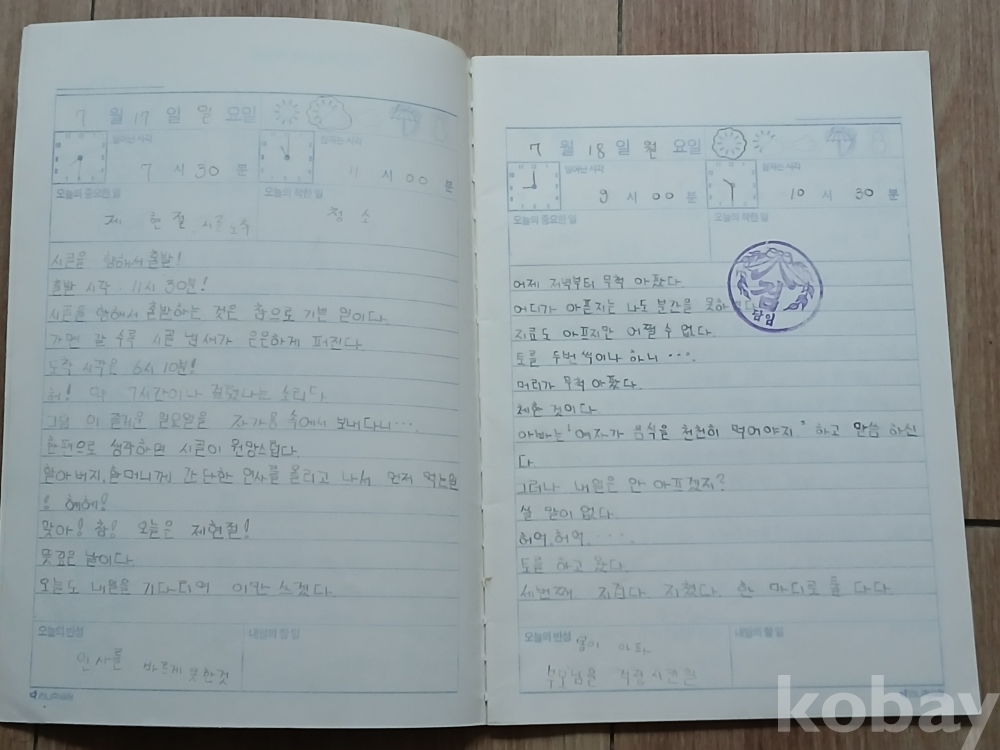 7 월 17 일 일 요일
일어난 시각
7 시 30 분
잠자는 시각
11 시 00 분
오늘의 중요한 일
제 헌 절, 시골
오늘의 착한 일
청 소
시골을 향해서 출발!
출발 시각 · 11시 30분!
시골을 향해서 출발하는 것은 참으로 기쁜 일이다.
가면 갈 수록 시골 냄새가 은은하게 퍼진다.
도착 시각은 6시 10분!
허! 약 7시간이나 걸렸다는 소리다.
그럼 이 즐거운 일요일을 자가용 속에서 보내다니····.
한편으로 생각하면 시골이 원망스럽다.
할아버지, 할머니께 간단한 인사를 올리고 나서 먼저
헤헤!
맞아! 참! 오늘은 제헌절!
뜻깊은 날이다.
오늘도 내일을 기다리며 이만 쓰겠다.
오늘의 반성
인사를 바르게 못한것
내일의 할 일
7 월 18 일 월 요일
일어난 시각
9 시 00 분
잠자는 시각
10 시 30 분
오늘의 중요한 일
오늘의 착한 일
어제 저녁부터 무척 아팠다.
어디가 아픈지는 나도 분간을 못하
치료도 아프지만 어쩔 수 없다.
토를 두번 씩이나 하니 ····.
머리가 무척 아팠다.
체한 것이다.
아빠는 '여자가 음식을 천천히 먹어야지.' 하고 말씀 하신
다.
그러나 내일은 안 아프겠지?
할 말이 없다.
허억, 허억, ····.
토를 하고 왔다.
세번째. 지겹다. 지쳤다. 한 마디로
참
담임
오늘의 반성
몸이 아파
부모님을 걱정시켜드린
내일의 할 일
kobay